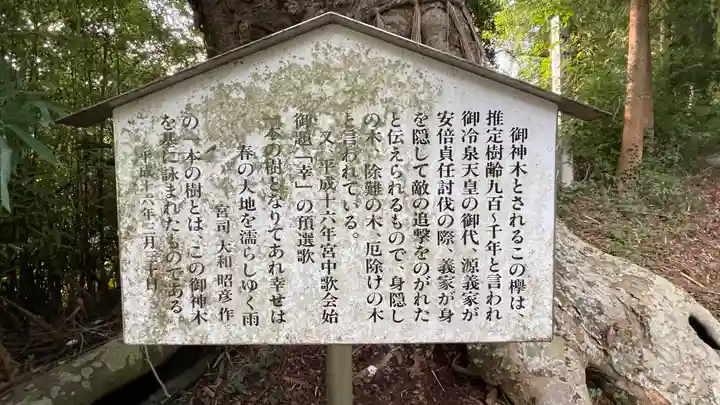 御神木とされるこの欅は、
推定樹齢九百〜千年と言われ
御冷泉天皇の御代、源義家が
安倍貞任討伐の際、義家が身
を隠して敵の追撃をのがれた
と伝えられるもので、身隠し
の木、除難の木、厄除けの木
と言われている。
又、平成十六年宮中歌会始
御題「幸」の預選歌
一本の樹となりてあれ幸せは
春の大地を濡らしゆく雨
宮司 大和 昭彦 作
の、一本の樹とは、この御神木
を基に詠まれたものである
平成十六年二月二十日